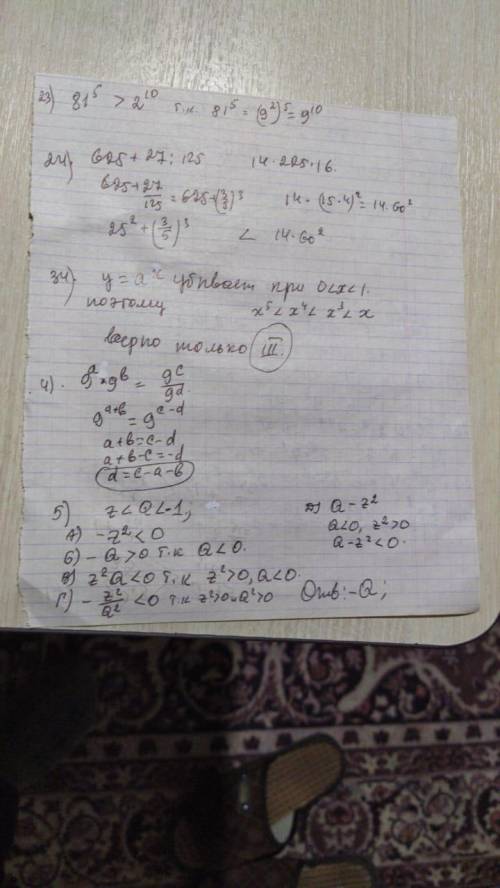 23) 81⁵ > 2¹⁰ т.к. 81⁵ = (9²)⁵ = 9¹⁰
24) 625 + 27 : 125 14 · 225 · 16.
625 + 27/125 = 625 + (3/5)³ 14 · (15 · 4)² = 14 · 60²
25² + (3/5)³ < 14 · 60²
34) y = aˣ убывает при 0 < x < 1.
поэтому x⁵ < x⁴ < x³ < x
верно только III
4). 9ᵃ * 9ᵇ = 9ᶜ/9ᵈ
9ᵃ⁺ᵇ = 9ᶜ⁻ᵈ
a + b = c - d
a + b - c = -d
d = c - a - b
5) z < a < -1; Д) a - z²
А) -z² < 0 a < 0, z² > 0
Б) -a > 0 т.к a < 0. a - z² < 0.
В) z²a < 0 т.к. z² > 0, a < 0.
Г) - z²/a² < 0 т.к z² > 0 и a² > 0 Отв: -a;